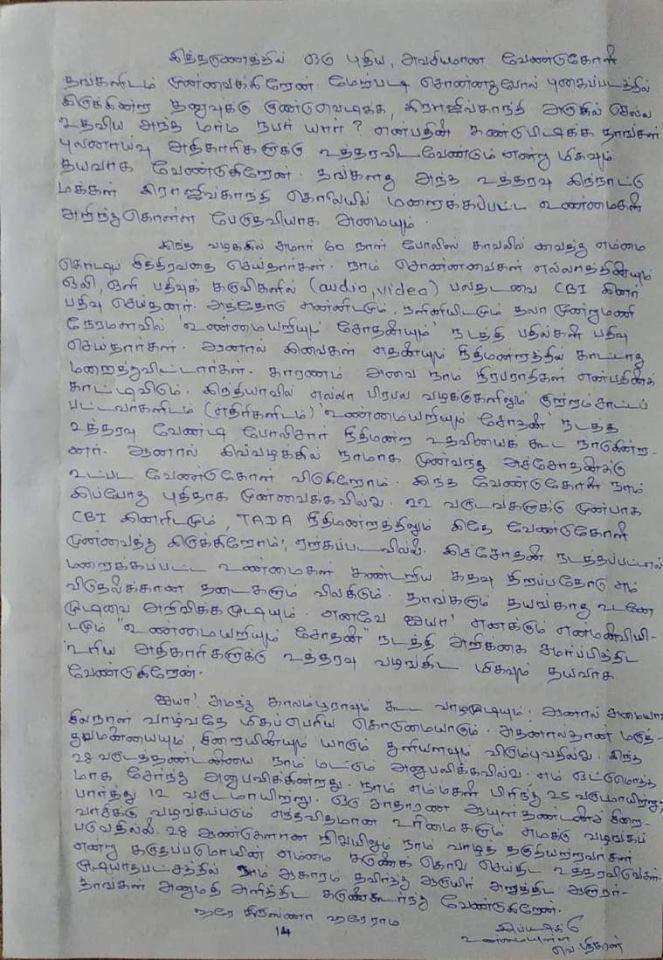 இத்தருணத்தில் ஒரு புதிய, அவசியமான வேண்டுகோளை
தங்களிடம் முன்வைக்கிறேன். மேற்படி சொன்னதுபோல் புகைப்படத்தில்
இருக்கின்ற தனுவுக்கு குண்டுவெடிக்க, இராஜிவ்காந்தி அருகில் செல்ல
உதவிய அந்த மர்ம நபர் யார்? என்பதினை கண்டுபிடிக்க தாங்கள்
புலனாய்வு அதிகாரிகளுக்கு உத்தரவிடவேண்டும் என்று மிகவும்
தயவாக வேண்டுகிறேன். தங்களது அந்த உத்தரவு இந்நாட்டு
மக்கள் இராஜிவ்காந்தி கொலையில் மறைக்கப்பட்ட உண்மைகளை
அறிந்துகொள்ள பேருதவியாக அமையும்.
இந்த வழக்கில் சுமார் 60 நாள் போலிஸ் காவலில் வைத்து எம்மை
கொடிய சித்திரவதை செய்தார்கள். நாம் சொன்னவைகள் எல்லாத்தினையும்
ஒலி, ஒளி பதிவுக் கருவிகளில் (audio, video) பலதடவை CBI யினர்
பதிவு செய்தனர். அத்தோடு என்னிடமும், நளினியிடமும் தலா மூன்றுமணி
நேரமளவில் உண்மையறியும் சோதனையும் நடத்தி பதில்கள் பதிவு
செய்தார்கள். ஆனால் இவைகள் எதனையும் நீதிமன்றத்தில் காட்டாது
மறைத்துவிட்டார்கள். காரணம் அவை நாம் நிரபராதிகள் என்பதினைக்
காட்டிவிடும். இந்தியாவில் எல்லா பிரபல வழக்குகளிலும் குற்றம்சாட்டப்
பட்டவர்களிடம் (எதிரிகளிடம்) உண்மையறியும் சோதனை நடத்த
உத்தரவு வேண்டி போலிசார் நீதிமன்ற உதவியைக் கூட நாடுகின்ற-
னர். ஆனால் இவ்வழக்கில் நாமாக முன்வந்து அச்சோதனைக்கு
உட்பட வேண்டுகோள் விடுகிறோம். இந்த வேண்டுகோளை நாம்
இப்போது புதிதாக முன்வைக்கவில்லை. 22 வருடங்களுக்கு முன்பாக
CBI யினரிடமும், TADA நீதிமன்றத்திலும் இதே வேண்டுகோளை
முன்வைத்து இருக்கிறோம், ஏற்கப்படவில்லை. இச்சோதனை நடத்தப்பட்டால்
மறைக்கப்பட்ட உண்மைகள் கண்டறிய கதவு திறப்பதோடு எம்
விடுதலைக்கான தடைகளும் விலகிடும். தாங்களும் தயங்காது உடனே
முடிவை அறிவிக்கமுடியும். எனவே ஐயா' எனக்கும் என்மனைவியி-
டமும் "உண்மையறியும் சோதனை" நடத்தி அறிக்கை சமர்ப்பித்திட
உரிய அதிகாரிகளுக்கு உத்தரவு வழங்கிட மிகவும் தயவாக
வேண்டுகிறேன்.
ஐயா' சுமந்து காலம்பூராவும் கூட வாழமுடியும். ஆனால்
சிலநாள் வாழ்வதே மிகப்பெரிய கொடுமையாகும். அதனால்தான் மருத்-
துவமனையையும், சிறையினையும் யாரும் துளியளவும் விரும்புவதில்லை. இந்த
28 வருடத்தண்டனையை நாம் மட்டும் அனுபவிக்கவில்லை. எம் ஒட்டுமொத்த
மாக சேர்ந்து அனுபவிக்கின்றது. நாம் எம்மகளை பிரிந்து 25 வருடமாயிற்று,
பார்த்து 12 வருடமாயிற்று. ஒரு சாதாரண ஆயுள் தண்டனைச் சிறை-
வாசிக்கு வழங்கப்படும் எந்தவிதமான உரிமைகளும் எமக்கு வழங்கப்
படுவதில்லை. 28 ஆண்டுகளான நிலையிலும் நாம் வாழத் தகுதியற்றவர்கள்
என்று கருதப்படுமாயின் எம்மை கருணைக் கொலை செய்திட உத்தரவிடுங்கள்.
முடியாதபட்சத்தில் நாம் ஆகாரம் தவிர்த்து ஆருயிர் அறுத்திட ஆளுநர்-
தாங்கள் அனுமதி அளித்திட கருணைகூர்ந்து வேண்டுகிறேன்.
ஹரே கிருஸ்ணா ஹரே ராம
இப்படிக்கு
14
உண்மையுள்ள